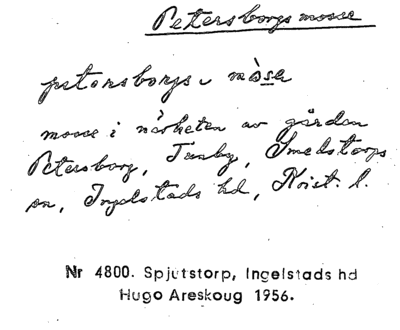 Petersborgs mosse
petersborgs mòse
mosse i närheten av gården
Petersborg, Tunby, Smedstorps
sn, Ingelstads hd, Krist. l.
Nr 4800. Spjutstorp, Ingelstads hd
Hugo Areskoug 1956.